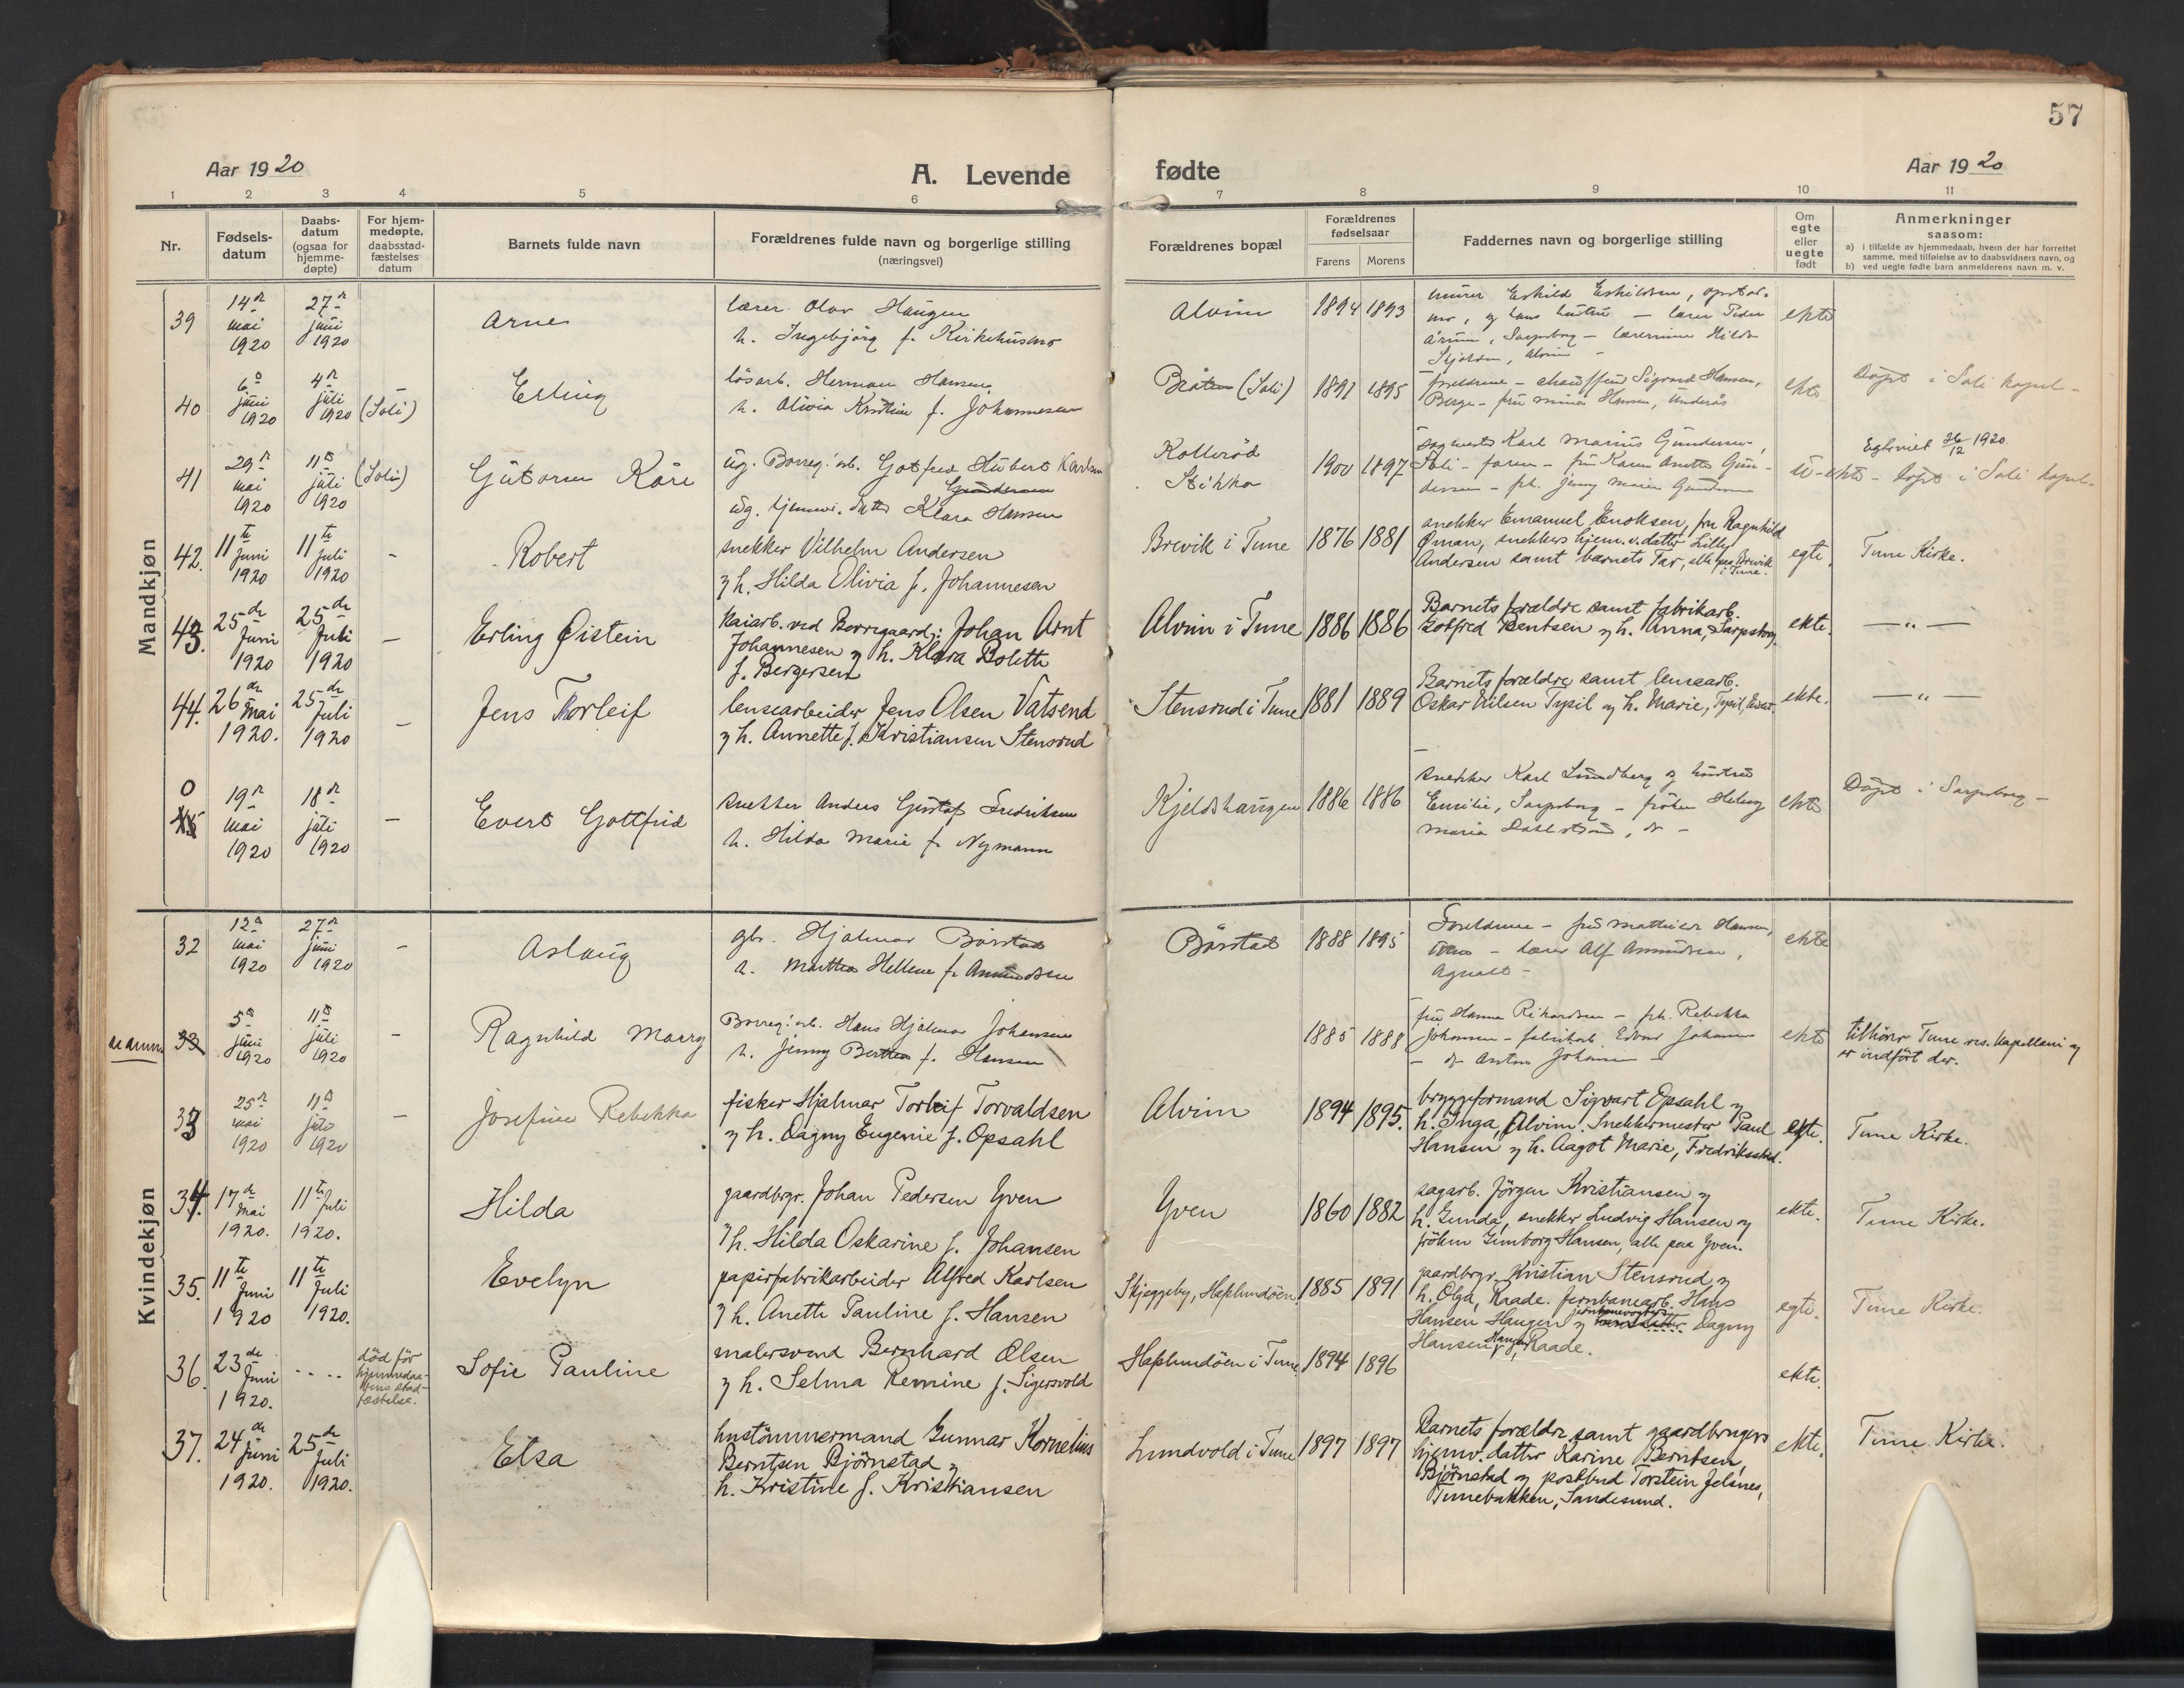 57
Aar 1920
A. Levende
fødte
Aar 1920
1 2 3 4 5 6 7 8 9 10 11
Nr.
Fødsels-
datum
Daabs-
datum
(ogsaa for
hjemme-
døpte)
For hjem-
medøpte,
daabsstad-
fæstelses
datum
Barnets fulde navn
Forældrenes fulde navn og borgerlige stilling
(næringsvei)
Forældrenes bopæl
Forældrenes
fødselsaar
Farens Morens
Faddernes navn og borgerlige stilling
Om
egte
eller
uegte
født
Anmerkninger
saasom:
a) i tilfælde av hjemmedaab, hvem der har forrettet
samme, med tilføielse av to daabsvidners navn, og
b) ved uegte fødte barn anmelderens navn m. v.
Mandkjøn
39
14de
mai
1920
27de
juni
1920
Arne
lærer Olav Haugen
h. Ingebjörg f. Kirkehusmo
Alvim
1894 1893
murer Eskild Eskildsen,
og hans hustru — lærer Peder
Sarpsborg — lærerinne Hilda
Alvim -
ekte
40
6te
juni
1920
4de
juli
1920
(Soli)
Erling
lösarb. Herman Hansen
h. Olivia Kristine f. Johannesen
Bråten (Soli)
1891 1895
foreldrene - chauffeur Sigvard Hansen,
Berge - fru Minda Hansen,
ekte
Döpt i Soli kapel -
41
29de
mai
1920
11te
juli
1920
(Soli)
Gutorm Kåre
ug. Borreg. arb. Gotfred Hubert Karlsen
Gundersen
ug. hjemmev. datter Klara Hansen
Kollerød
Stikka
1900 1897
Karl Marius Gundersen,
Soli - faren - fru Karen Anette Gun-
dersen - frk. Jenny Marie Gundersen
u-ekte
Egteviet 26/12 1920.
- Döpt i Soli kapel -
42.
11te
Juni
1920
11te
Juli
1920
-
Robert
snekker Vilhelm Andersen
og h. Hilda Olivia f. Johannesen
Brevik i Tune
1876 1881
snekker Emanuel Enoksen, fru Ragnhild
Öman, snekkers hjem.v.datter Lilly
Andersen samt barnets Far, alle paa Brevik
i Tune.
egte.
Tune Kirke.
43.
25de
Juni
1920
25de
Juli
1920
—
Erling Øistein
Kaiarb. ved Borregaard: Johan Arnt
Johannesen og h. Klara Bolette
f. Bergersen
Alvim i Tune
1886 1886
Barnets forældre samt fabrikarb.
Gotfred Bentsen og h. Anna, Sarpsborg.
ekte.
—"—
44.
26de
Mai
1920.
25de
Juli
1920
—
Jens Thorleif
lensearbeider Jens Olsen Vatsend
og h. Annette f. Kristiansen Stensrud
Stensrud i Tune
1881 1889
Barnets forældre samt lensearb.
Oskar Nilsen Typil og h. Marie, Typil,
ekte.
—"—
0
45
19de
mai
1920
18de
juli
1920
—
Evert Gottfrid
snekker Anders Gustaf Fredriksen
h. Hilda Marie f. Nymann
Kjeldshaugen
1886 1886
snekker Karl Lundberg og hustru
Emilie, Sarpsborg - fröken Helny
Maria Dahlstrand, do -
ekte
Döpt i Sarpsborg -
Kvindekjøn
32
12te
mai
1920
27de
juni
1920
-
Aslaug
gbr. Hjalmar Börstad
h. Marthea Hellene f. Amundsen
Börstad
1888 1895
Foreldrene - fru Mathilde Hansen,
- lærer Alf Amundsen,
Agnalt -
ekte
33
5te
juni
1920
11te
juli
1920
-
Ragnhild Marry
Borreg. arb. Hans Hjalmar Johansen
h. Jenny Berthea f. Hansen
1885 1888
fru Hanna Rikardsen - frk. Rebekka
Johansen - fabrikarb. Edvard Johansen
- do Anton Johansen -
ekte
tilhörer Tune res. kapellani og
er indfört der.
33
25de
mai
1920
11te
juli
1920
-
Josefine Rebekka
fisker Hjalmar Torleif Torvaldsen
og h. Dagny Eugenie f. Opsahl
Alvim
1894 1895.
bryggeformand Sigvart Opsahl og
h. Inga, Alvim. Snekkermester Paul
Hansen og h. Aagot Marie, Fredriksstad.
egte.
Tune Kirke.
34.
17de
Mai
1920.
11te Juli
1920.
Hilda
gaardbrgr. Johan Pedersen Yven
og h. Hilda Oskarine f. Johansen
Yven
1860 1882
sagarb. Jörgen Kristiansen og
h. Gunda, snekker Ludvig Hansen og
fröken Gunborg Hansen, alle paa Yven.
ekte.
Tune Kirke.
35.
11te
Juni
1920
11te
Juli
1920.
Evelyn
papirfabrikarbeider Alfred Karlsen
og h. Anette Pauline f. Hansen
Skjeggeby, Haslundöen.
1885 1891
gaardbrgr. Kristian Stensrud og
h. Olga, Raade. jernbanearb. Hans
Hansen Haugen og Dagny
Hansen Haugen, Raade.
egte.
Tune Kirke.
36.
23de
Juni
1920.
....
död för
hjemmedaa-
bens stad-
fæstelse.
Sofie Pauline
malersvend Bernhard Olsen
og h. Selma Remine f. Sigersvold
Haslundöen i Tune
1894 1896
ekte.
37.
24de
Juni
1920.
25de
Juli
1920.
Elsa
hustömmermand Gunnar Kornelius
Berntsen Björnstad og
h. Kristine f. Kristiansen
Lundvold i Tune
1897 1897
Barnets forældre samt gaardbrugers
hjemv. datter Karine Berntsen,
Björnstad og postbud Torstein Jelsnes,
Tunebakken, Sandesund.
ekte.
Tune Kirke.